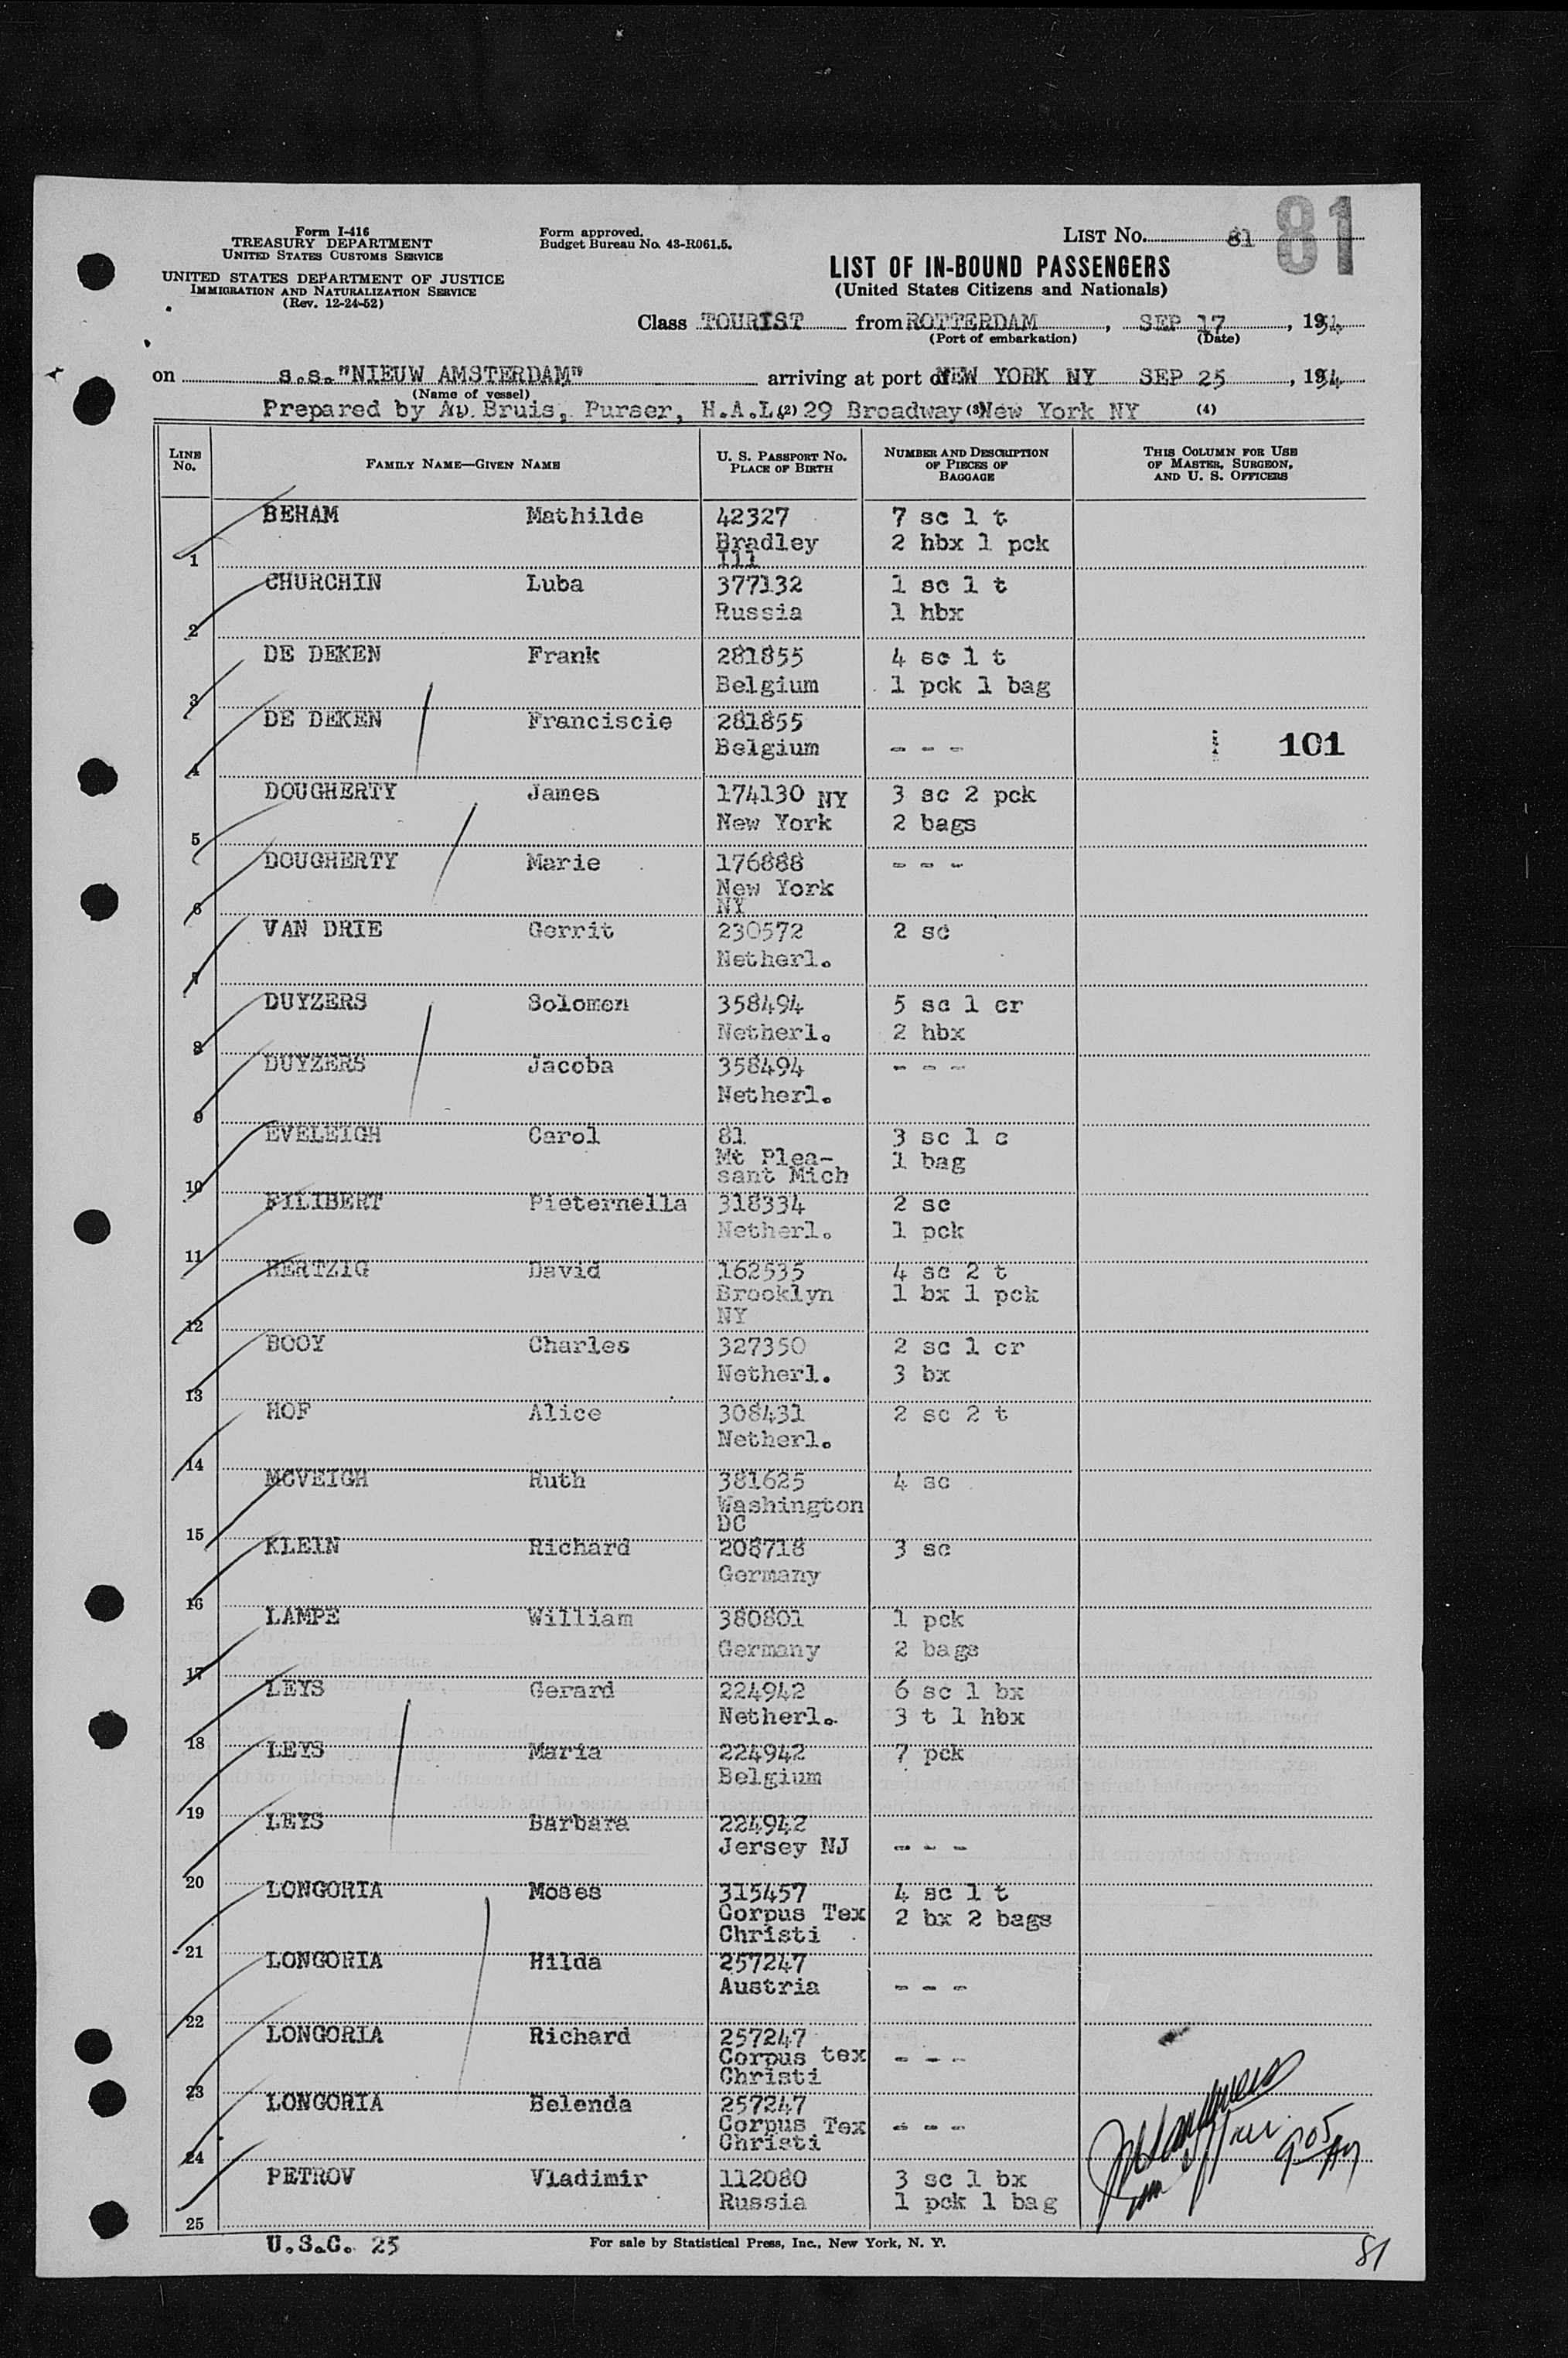 Form I-416
TREASURY DEPARTMENT
UNITED STATES CUSTOMS SERVICE
UNITED STATES DEPARTMENT OF JUSTICE
IMMIGRATION AND NATURALIZATION SERVICE
(Rev. 12-24-52)
Form approved.
Budget Bureau No. 43-R061.5.
LIST NO. 81
81
LIST OF IN-BOUND PASSENGERS
(United States Citizens and Nationals)
Class TOURIST from ROTTERDAM, SEP 17, 1954
(Port of embarkation) (Date)
on s.s."NIEUW AMSTERDAM" arriving at port of NEW YORK NY SEP 25, 1954
(Name of vessel)
Prepared by Bruis, Purser, H.A.L (2) 29 Broadway (3) New York NY (4)
LINE No. FAMILY NAME—GIVEN NAME U. S. PASSPORT NO. PLACE OF BIRTH NUMBER AND DESCRIPTION OF PIECES OF BAGGAGE THIS COLUMN FOR USE OF MASTER, SURGEON, AND U. S. OFFICERS
BEHAM Mathilde 42327 7 sc 1 t
Bradley 2 hbx 1 pck
1 Ill
CHURCHIN Luba 377132 1 sc 1 t
Russia 1 hbx
2
DE DEKEN Frank 281855 4 sc 1 t
Belgium 1 pck 1 bag
3
DE DEKEN Franciscie 281855
Belgium - - - 101
4
DOUGHERTY James 174130 NY 3 sc 2 pck
New York 2 bags
5
DOUGHERTY Marie 176888 - - -
New York
6 NY
VAN DRIE Gerrit 230572 2 sc
Netherl.
7
DUYZERS Solomon 358494 5 sc 1 cr
Netherl. 2 hbx
8
DUYZERS Jacoba 358494 - - -
Netherl.
9
EVELEIGH Carol 81 3 sc 1 c
Mt Plea- 1 bag
sant Mich
10
FILIBERT Pieternella 318334 2 sc
Netherl. 1 pck
11
HERTZIG David 162535 4 sc 2 t
Brooklyn 1 bx 1 pck
12 NY
BOOY Charles 327350 2 sc 1 cr
Netherl. 3 bx
13
HOF Alice 308431 2 sc 2 t
Netherl.
14
MCVEIGH Ruth 381625 4 sc
Washington
15 DC
KLEIN Richard 208718 3 sc
Germany
16
LAMPE William 380801 1 pck
Germany 2 bags
17
LEYS Gerard 224942 6 sc 1 bx
Netherl. 3 t 1 hbx
18
LEYS Maria 224942 7 pck
Belgium
19
LEYS Barbara 224942
Jersey NJ - - -
20
LONGORIA Moses 315457 4 sc 1 t
Corpus Tex 2 bx 2 bags
Christi
21
LONGORIA Hilda 257247
Austria - - -
22
LONGORIA Richard 257247
Corpus tex - - -
Christi
23
LONGORIA Belenda 257247
Corpus Tex - - -
Christi
24
PETROV Vladimir 112080 3 sc 1 bx
Russia 1 pck 1 bag
25
U.S.C. 25
For sale by Statistical Press, Inc., New York, N. Y.
81